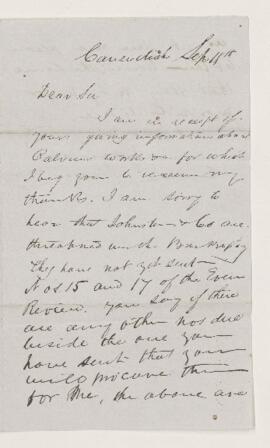 Cavendish Sep 11th
Dear Sir
I am in receipt of
yours giving information about
Calvins works &c for which
I beg you to receive my
thanks. I am sorry to
hear that Johnston & Co are
threatened with Bankruptcy
They have not yet sent
Nos 15 and 17 of the Evan
Review. You say if there
are any other nos due
beside the one you
have sent that you
will procure them
for me, the above are